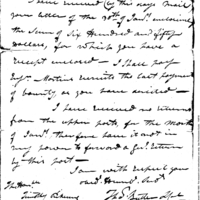 I have received (by this days mail)
your letter of the 30th of Jany. enclosing
the Sum of Six Hundred and fifty
dollars, for which you have a
receipt enclosed — I shall pay
Ensn. remits the last payment
of bounty as you have advised —
I have received no returns
from the upper posts, for the month
of Jany. therefore have it not in
my power to forward a Genl. return
by this post —
I am with respect your
obdt. Humbl. Servt.
Thos. Butler
The Honble.